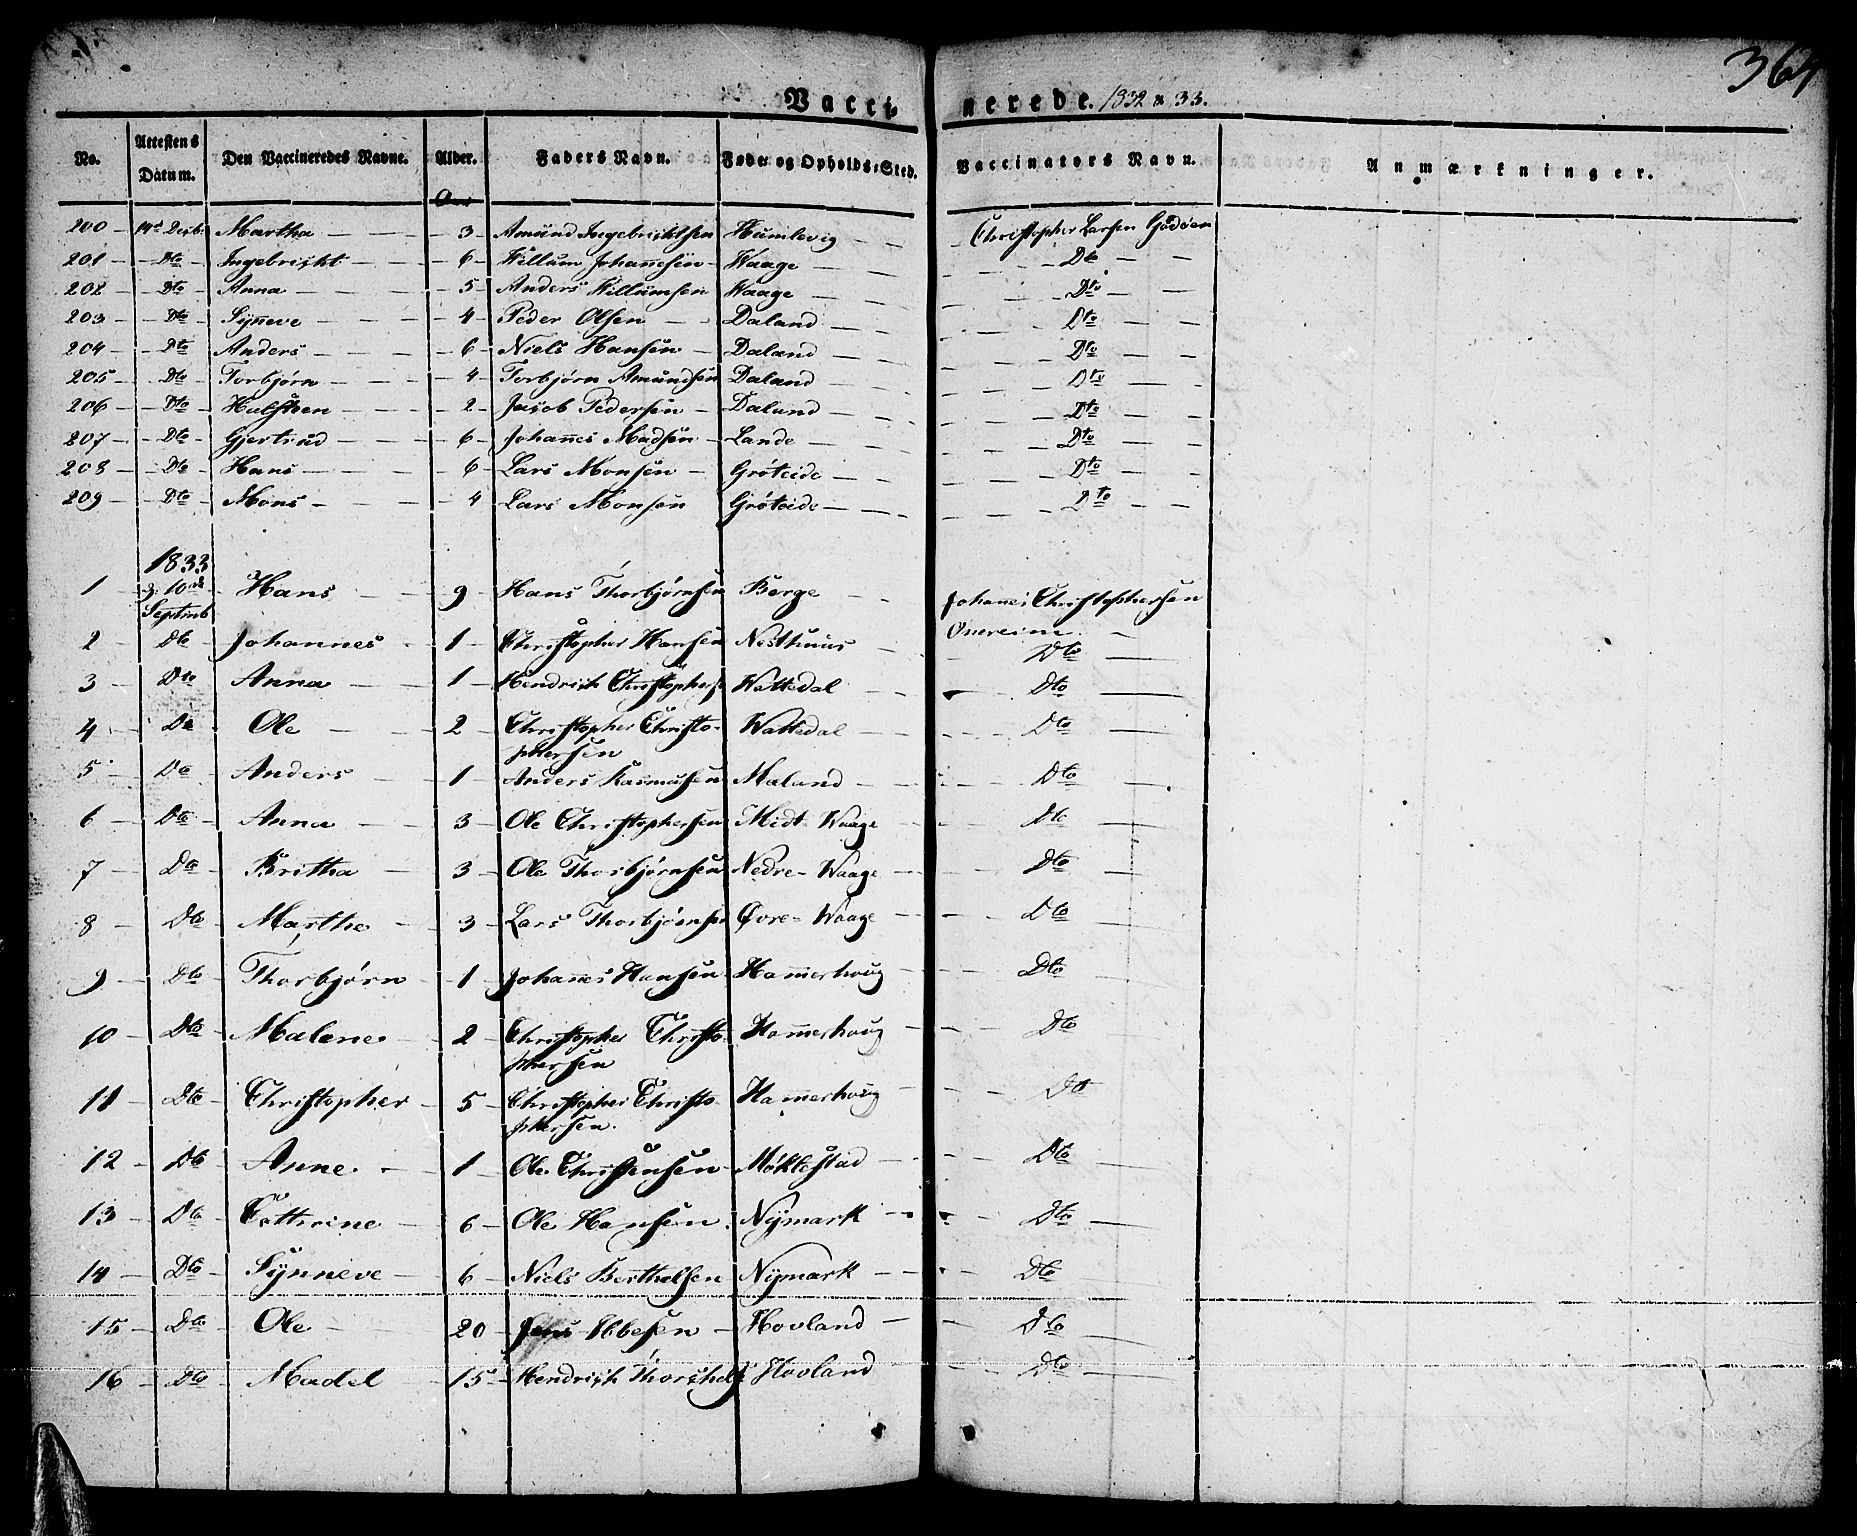 364
Vaccinerede. 1832 & 33.
No. Attestens Datum. Den Vaccineredes Navne. Alder. Faders Navn. Føde- og Opholds-Sted. Vaccinators Navn. Anmærkninger.
200 14de Decbr Martha 3 Amund Ingebrichtsen Humlevig Christopher Larsen Godøen
201 Dto Ingebricht 6 Willum Johannesen Waage Dto
202 Dto Anna 5 Anders Willumsen Waage Dto
203 Dto Synneve 4 Peder Olsen Daland Dto
204 Dto Anders 6 Niels Hansen Daland Dto
205 Dto Torbjørn 4 Torbjørn Amundsen Daland Dto
206 Dto Halsten 2 Jacob Pedersen Daland Dto
207 Dto Gjertrud 6 Johannes Madsen Lande Dto
208 Dto Hans 6 Lars Monsen Grøteide Dto
209 Dto Mons 4 Lars Monsen Grøteide Dto
1833
1 d. 10de Septmb Hans 9 Hans Thorbjørnsen Berge Johannes Christophersen
2 Dto Johannes 1 Christopher Hansen Nesthuus Dto
3 Dto Anna 1 Hendrich Christophers Wattedal Dto
4 Do Ole 2 Christopher Christo- Wattedal Dto
phersen
5 Do Anders 1 Anders Rasmusen Maland Dto
6 Dto Anna 3 Ole Christophersen Midt-Waage Dto
7 Dto Britha 3 Ole Thorbjørnsen Nedre-Waage Dto
8 Dto Marthe 3 Lars Thorbjørnsen Øvre-Waage Dto
9 Dto Thorbjørn 1 Johannes Hansen Hammerhoug Dto
10 Dto Malene 2 Christopher Christo- Hammerhoug Dto
phersen
11 Dto Christopher 5 Christopher Christo- Hammerhoug Dto
phersen.
12 Dto Anne 1 Ole Christensen Møklestad Dto
13 Dto Cathrine 6 Ole Hansen Nymark Dto
14 Dto Synneve 6 Niels Berthelsen Nymark Dto
15 Dto Ole 20 Jens Ibbesen Hovland Dto
16 Dto Madel 15 Hendrich Hovland Dto